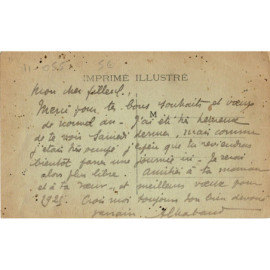 mon cher filleul,
IMPRIMÉ ILLUSTRÉ
Merci pour tes bons souhaits et vœux
de nouvel an. J'ai été très heureux
M
de te voir Samedi dernier, mais comme
j'étais très occupé j'espère que tu reviendras
bientôt passer une journée ici. Je serai
alors plus libre. Amitiés à ta maman
et à ta sœur et meilleurs vœux pour
1925. Crois moi toujours ton bien dévoué
parrain.